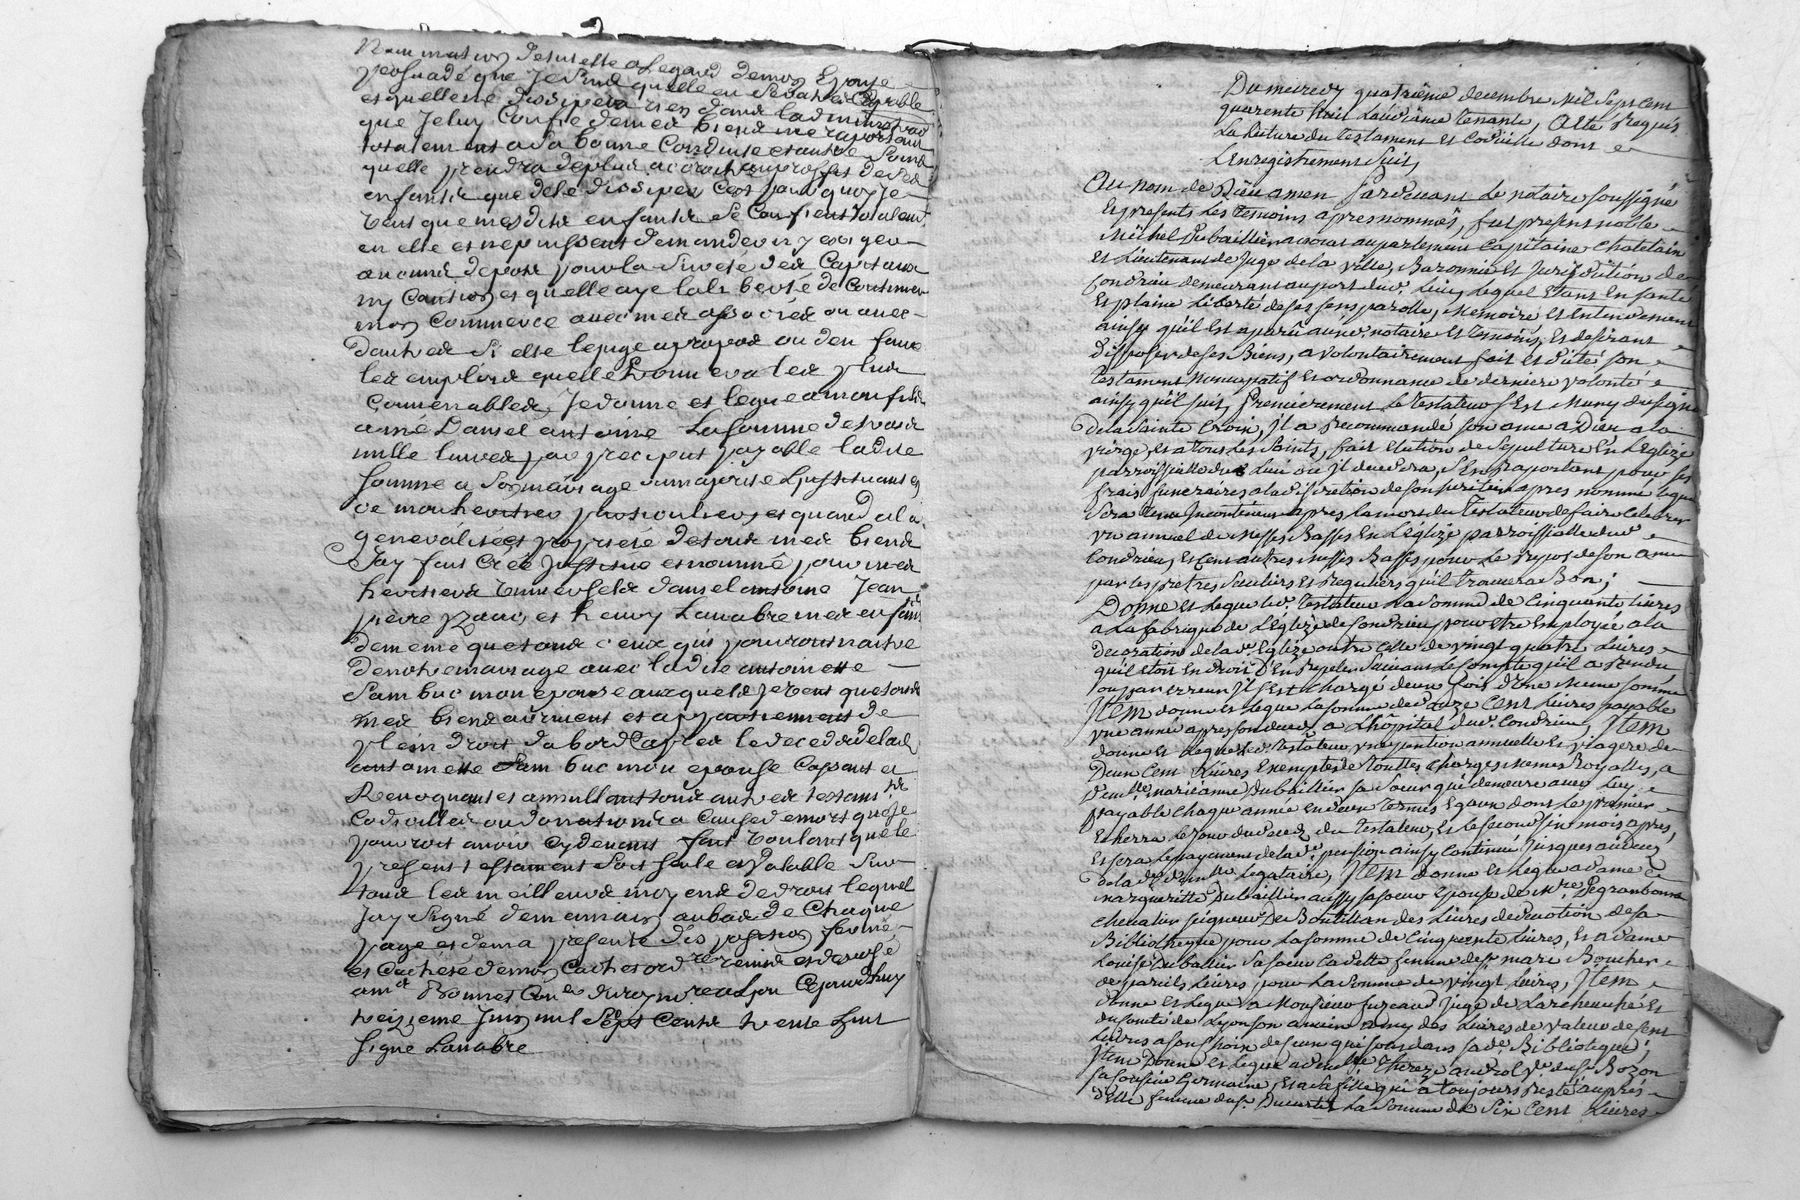 Nomination de tutelle a legard demon Epouse
persuadé que Je suis quelle en sera tres Capable
et quelle ne dissipera rien dans ladministrao
que Je luy Confie demes biens me raportant
totalement a sa bonne Conduite et aux soins
quelle prendra deplus accroitre au profit de ses
enfants que de les dissiper Cest pourquoy Je
veux que mesdits enfants se Confient totalemt
en elle et ne puissent demander ny exiger
aucune depost pour la sureté des Capitaux
ny Caution et quelle aye la liberté de Continuer
mon Commerce avec mes associés ou avec
dautres si elle le juge apropos ou den faire
les emplois quelle trouvera les plus
Convenables, Je donne et legue a mon fils
ainé Daniel antoine La somme de trois
mille livres par preciput payable ladite
somme a son mariage ou majorité Linstituant en
ce mon heritier particulier, et quand a la
generalité et proprieté detous mes biens
Jay fait Créé Institué et nommé pour mes
heritiers universels daniel antoine Jean
pierre Izaac, et henry Lanabre mes enfants
de meme que tous ceux qui pourront naitre
denotre mariage avec ladite antoinette
Sambuc mon epouse auxquels Je veux que tous
mes biens aviennent et apartiennent de
plein droit dabord apres le deced de lad.
antoinette Sambuc mon epouse Cassant et
Revoquant et annullant tous autres testamts
Codicilles ou donations a Cause de mort que Je
pourrois avoir Cy devant fait voulant que le
present testament soit seule et valable sur
tous les meilleurs moyens de droit lequel
Jay Signé de ma main au bas de Chaque
page et de ma presente disposition fermé
et Cacheté de mon Cachet ordre remis et deposé
a mr Bonnet Coner du roy nore a Lyon Cejourdhuy
treizieme Juin mil Sept Cents trente huit
Signé Lanabre
Du mercredy quatrième decembre Mil Sept cent
quarente huit Laudiance tenante, A Eté Requis
La Lecture du testament et Codicille dont
Lenregistrement Suit,
Au nom de Dieu amen Pardevant Le notaire soussigné
Et presents Les temoins apres nommés, fut present noble
Michel Dubaillier avocat au parlement Capitaine Chatelain
Et Lieutenant de Juge de la Ville, Baronnie Et Jurisdiction de
Condrieu demeurant au port dud. Lieu, Lequel Etant En santé
Et pleine Liberté de ses sens parolle, Memoire Et Entendement
ainsy qu'il Est aparû aud. notaire Et temoins, Et desirant
Disposer de ses Biens, a volontairement fait Et dicté son
Testament Noncupatif Et ordonnance de derniere volonté
ainsy qu'il Suit, Premierement Le testateur s'Est Muny du signe
De la Sainte Croix, Il a Recommandé son ame a Dieu a la
vierge, Et a tous Les Saints, fait Election de Sepulture En L'Eglize
parroissialle du Lieu ou Il decedera, S'En raportant pour ses
frais funeraires a la discretion de son heritier apres nommé lequel
sera tenu Incontinent apres La mort du Testateur de faire Celebrer
vn annuel de Messes Basses En L'Eglize parroissialle dud.
Condrieu, Et Cent autres messes Basses pour Le Repos de son ame
par Les pretres Seculiers Et Reguliers qu'il Trouvera Bon;
Donne Et Legue led. Testateur La somme de Cinquante Livres
a La fabrique de L'Eglize de Condrieu pour Etre Employée a la
decoration de lad. Eglize outre Celle de vingt quatre Livres
qu'il Etoit En droit D'En Repeter Suivant Le Compte qu'il a Rendu
ou par Erreur Il S'Est chargé deux fois d'Une meme somme
Item donne Et Legue La somme de douze Cent Livres payable
vne année apres son deceds a L'hopital dud. Condrieu, Item
donne Et Legue led. Testateur vne pention annuelle Et viagere de
Deux Cent Livres Exempte de Touttes Charges Memes Royalles, a
Demlle marianne Dubaillier sa Soeur qui demeure avec Luy
payable Chaque année En deux Termes Egaux dont Le premier
Echerra Le Jour du deceds du Testateur, Et Le second six mois apres,
Et sera Le payement de lad. pension ainsy Continué Jusques au deceds
de lad. Demlle Legataire, Item donne Et Legue a dame
marguerite Dubaillier aussy sa soeur Epouse de Mre Legranbonne
Chevalier Seigneur De Boutillan des Livres de devotion de sa
Bibliotheque pour La somme de Cinquante Livres, Et a dame
Louise Dubaillier Sa soeur Cadette femme de sr mare Boucher
de pareils Livres pour La somme de vingt Livres, Item
donne Et Legue a Monsieur fuzeau Juge de Larcheveché Et
du Comté de Lyon son ancien amy des Livres de valeur de Cent
Livres a son choix de ceux qui sont dans sa d. Bibliotheque;
Item Donne Et Legue a demlle Thereze androl ve du sr Bozon
sa Cousine Germaine, Et a sa fille qui a toujours resté auprés
d'Elle femme du sr. Ducurtil La Somme de Six Cent Livres